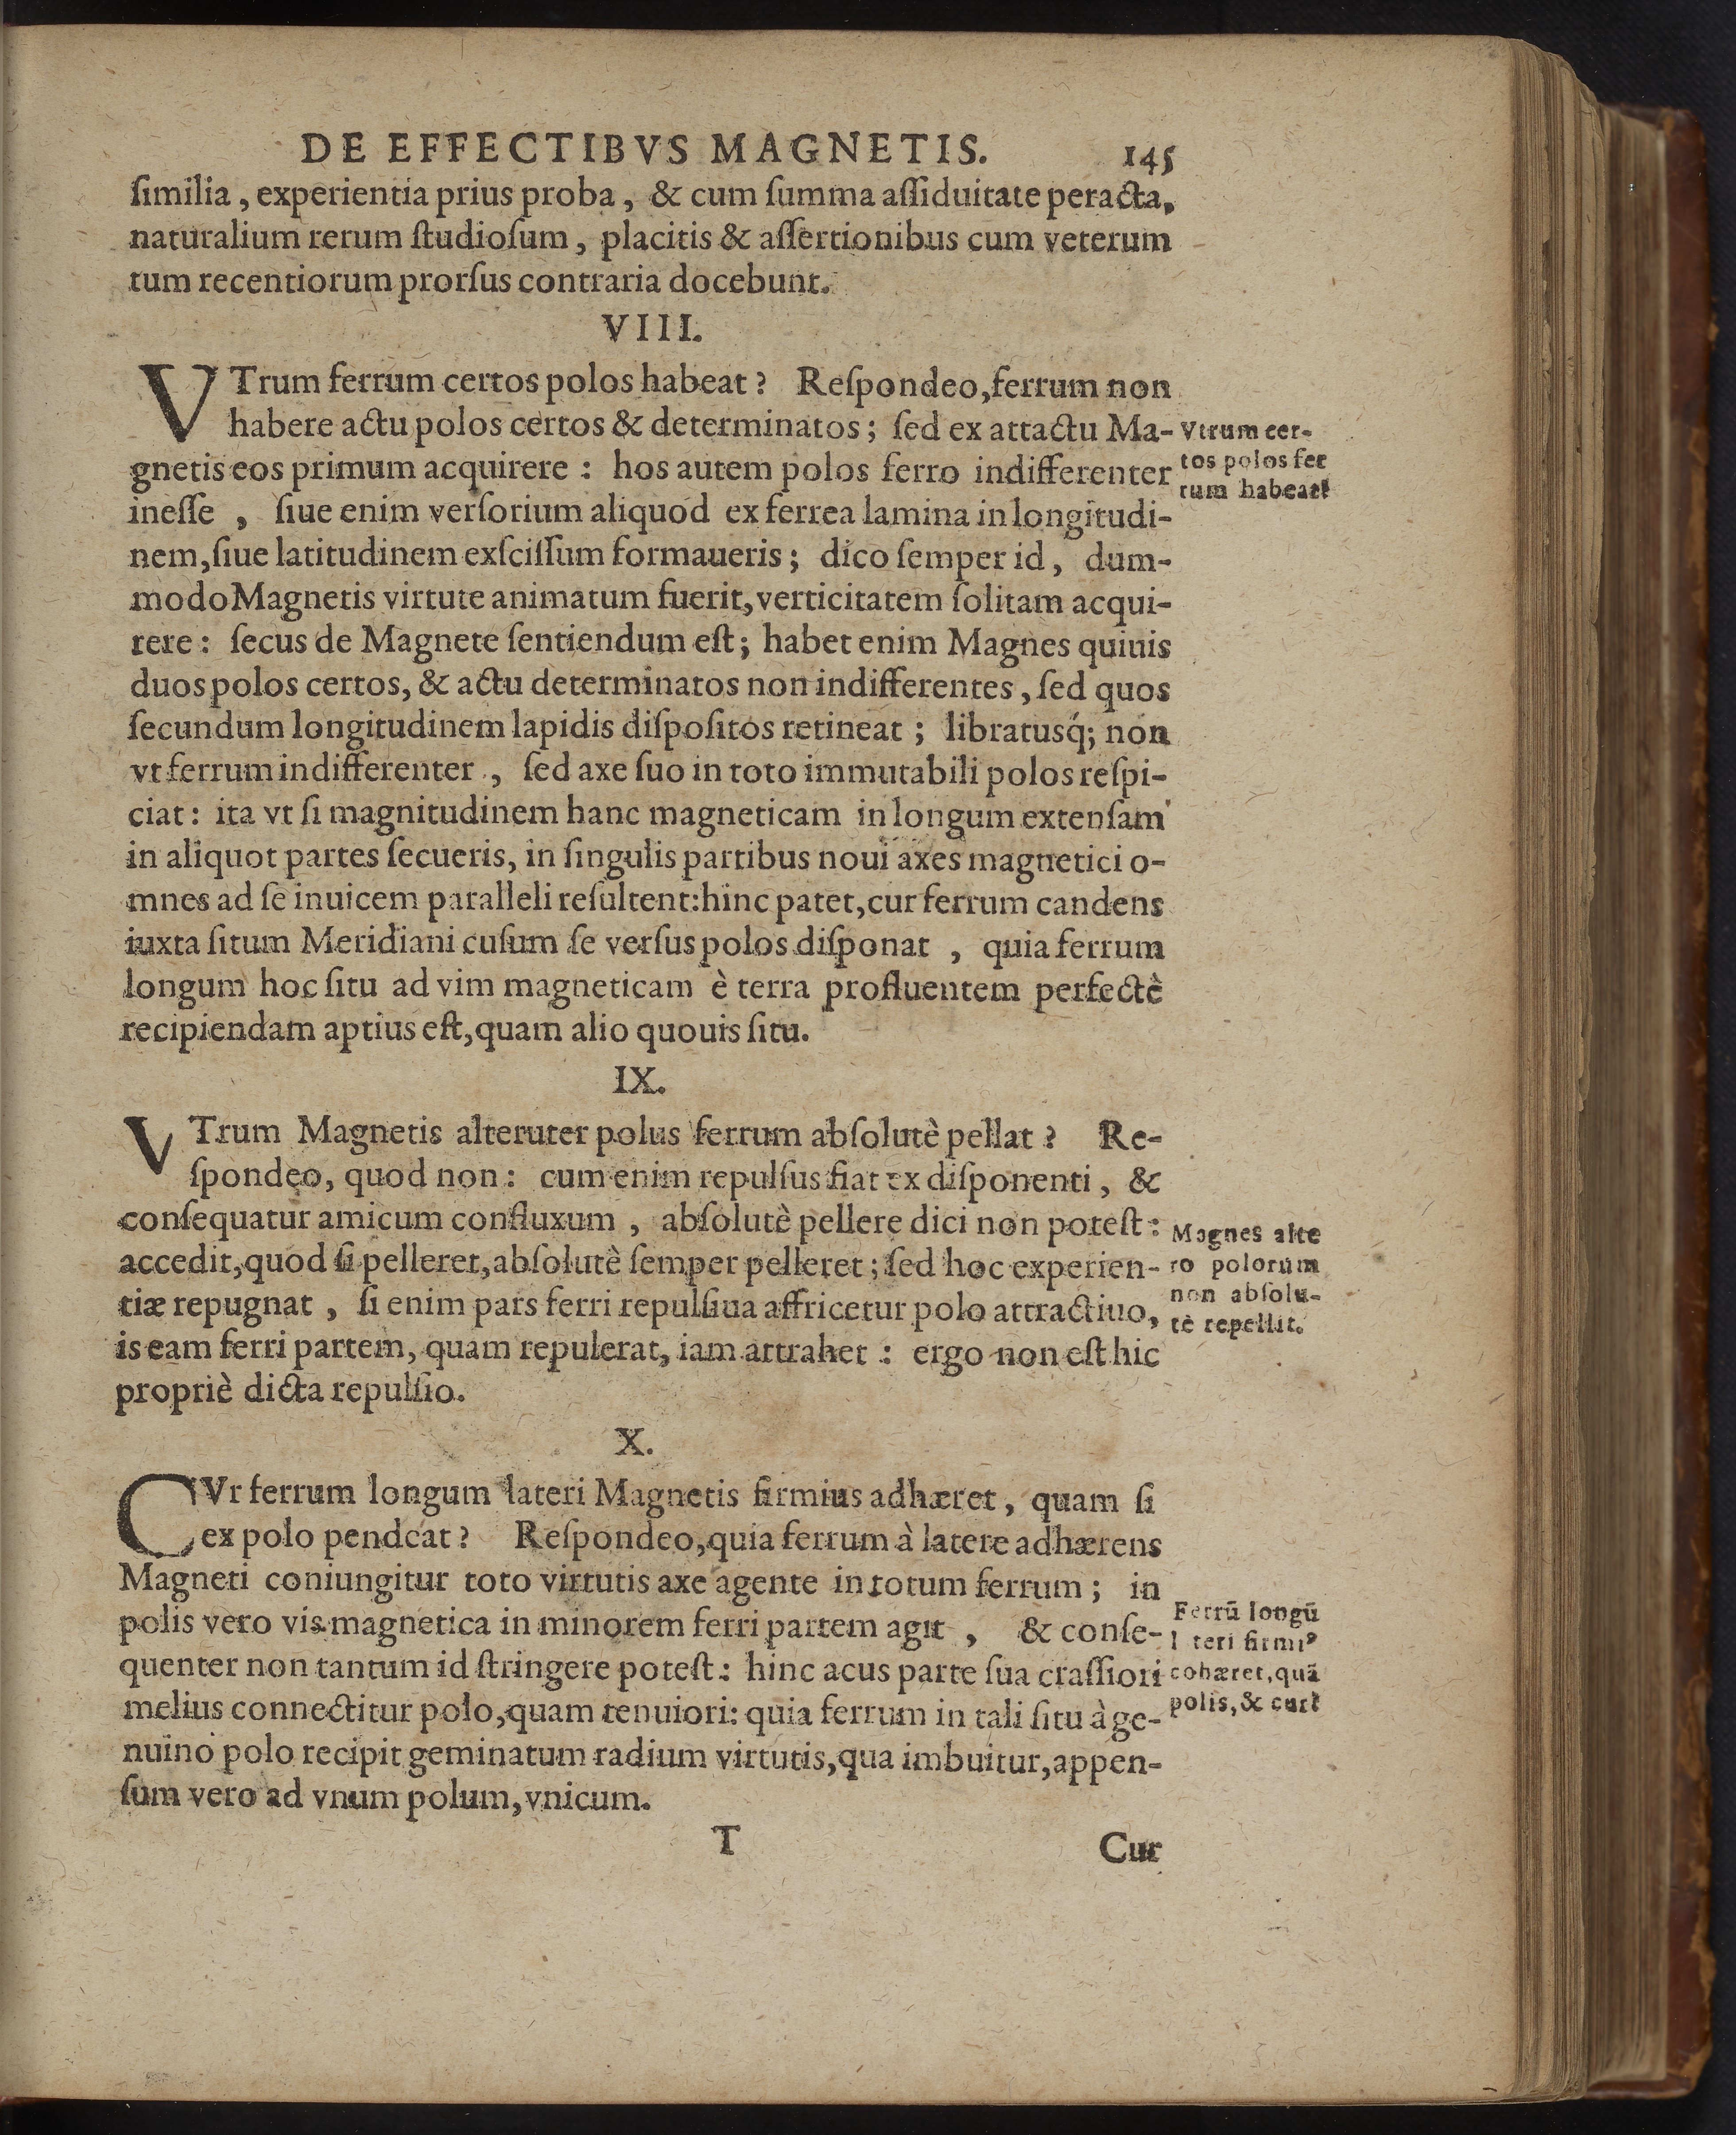 DE EFFECTIBVS MAGNETIS. 145
ſimilia, experientia prius proba, & cum ſumma aſſiduitate peracta,
naturalium rerum ſtudioſum, placitis & aſſertionibus cum veterum
tum recentiorum prorſus contraria docebunt.
VIII.
VTrum ferrum certos polos habeat? Reſpondeo, ferrum non
habere actu polos certos & determinatos; ſed ex attactu Ma-
gnetis eos primum acquirere: hos autem polos ferro indifferenter
ineſſe, ſiue enim verſorium aliquod ex ferrea lamina in longitudi-
nem, ſiue latitudinem exſciſſum formaueris; dico ſemper id, dum-
modo Magnetis virtute animatum fuerit, verticitatem ſolitam acqui-
rere: ſecus de Magnete ſentiendum eſt; habet enim Magnes quiuis
duos polos certos, & actu determinatos non indifferentes, ſed quos
ſecundum longitudinem lapidis diſpoſitos retineat; libratusq́; non
vt ferrum indifferenter, ſed axe ſuo in toto immutabili polos reſpi-
ciat: ita vt ſi magnitudinem hanc magneticam in longum extenſam
in aliquot partes ſecueris, in ſingulis partibus noui axes magnetici o-
mnes ad ſe inuicem paralleli reſultent: hinc patet, cur ferrum candens
iuxta ſitum Meridiani cuſum ſe verſus polos diſponat, quia ferrum
longum hoc ſitu ad vim magneticam è terra profluentem perfectè
recipiendam aptius eſt, quam alio quouis ſitu.
Vtrum cer-
tos polos fer
rum habeat?
IX.
VTrum Magnetis alteruter polus ferrum abſolutè pellat? Re-
ſpondeo, quod non: cum enim repulſus fiat ex diſponenti, &
conſequatur amicum confluxum, abſolutè pellere dici non poteſt:
accedit, quod ſi pelleret, abſolutè ſemper pelleret; ſed hoc experien-
tiæ repugnat, ſi enim pars ferri repulſiua affricetur polo attractiuo,
is eam ferri partem, quam repulerat, iam attrahet: ergo non eſt hic
propriè dicta repulſio.
Magnes alte
ro polorum
non abſolu-
tè repellit.
X.
CVr ferrum longum lateri Magnetis firmius adhæret, quam ſi
ex polo pendeat? Reſpondeo, quia ferrum à latere adhærens
Magneti coniungitur toto virtutis axe agente in totum ferrum; in
polis vero vis magnetica in minorem ferri partem agit, & conſe-
quenter non tantum id ſtringere poteſt: hinc acus parte ſua craſſiori
melius connectitur polo, quam tenuiori: quia ferrum in tali ſitu à ge-
nuino polo recipit geminatum radium virtutis, qua imbuitur, appen-
ſum vero ad vnum polum, vnicum.
Ferrū longū
l teri firmiꝰ
cohæret, quã
polis, & cur?
T Cur